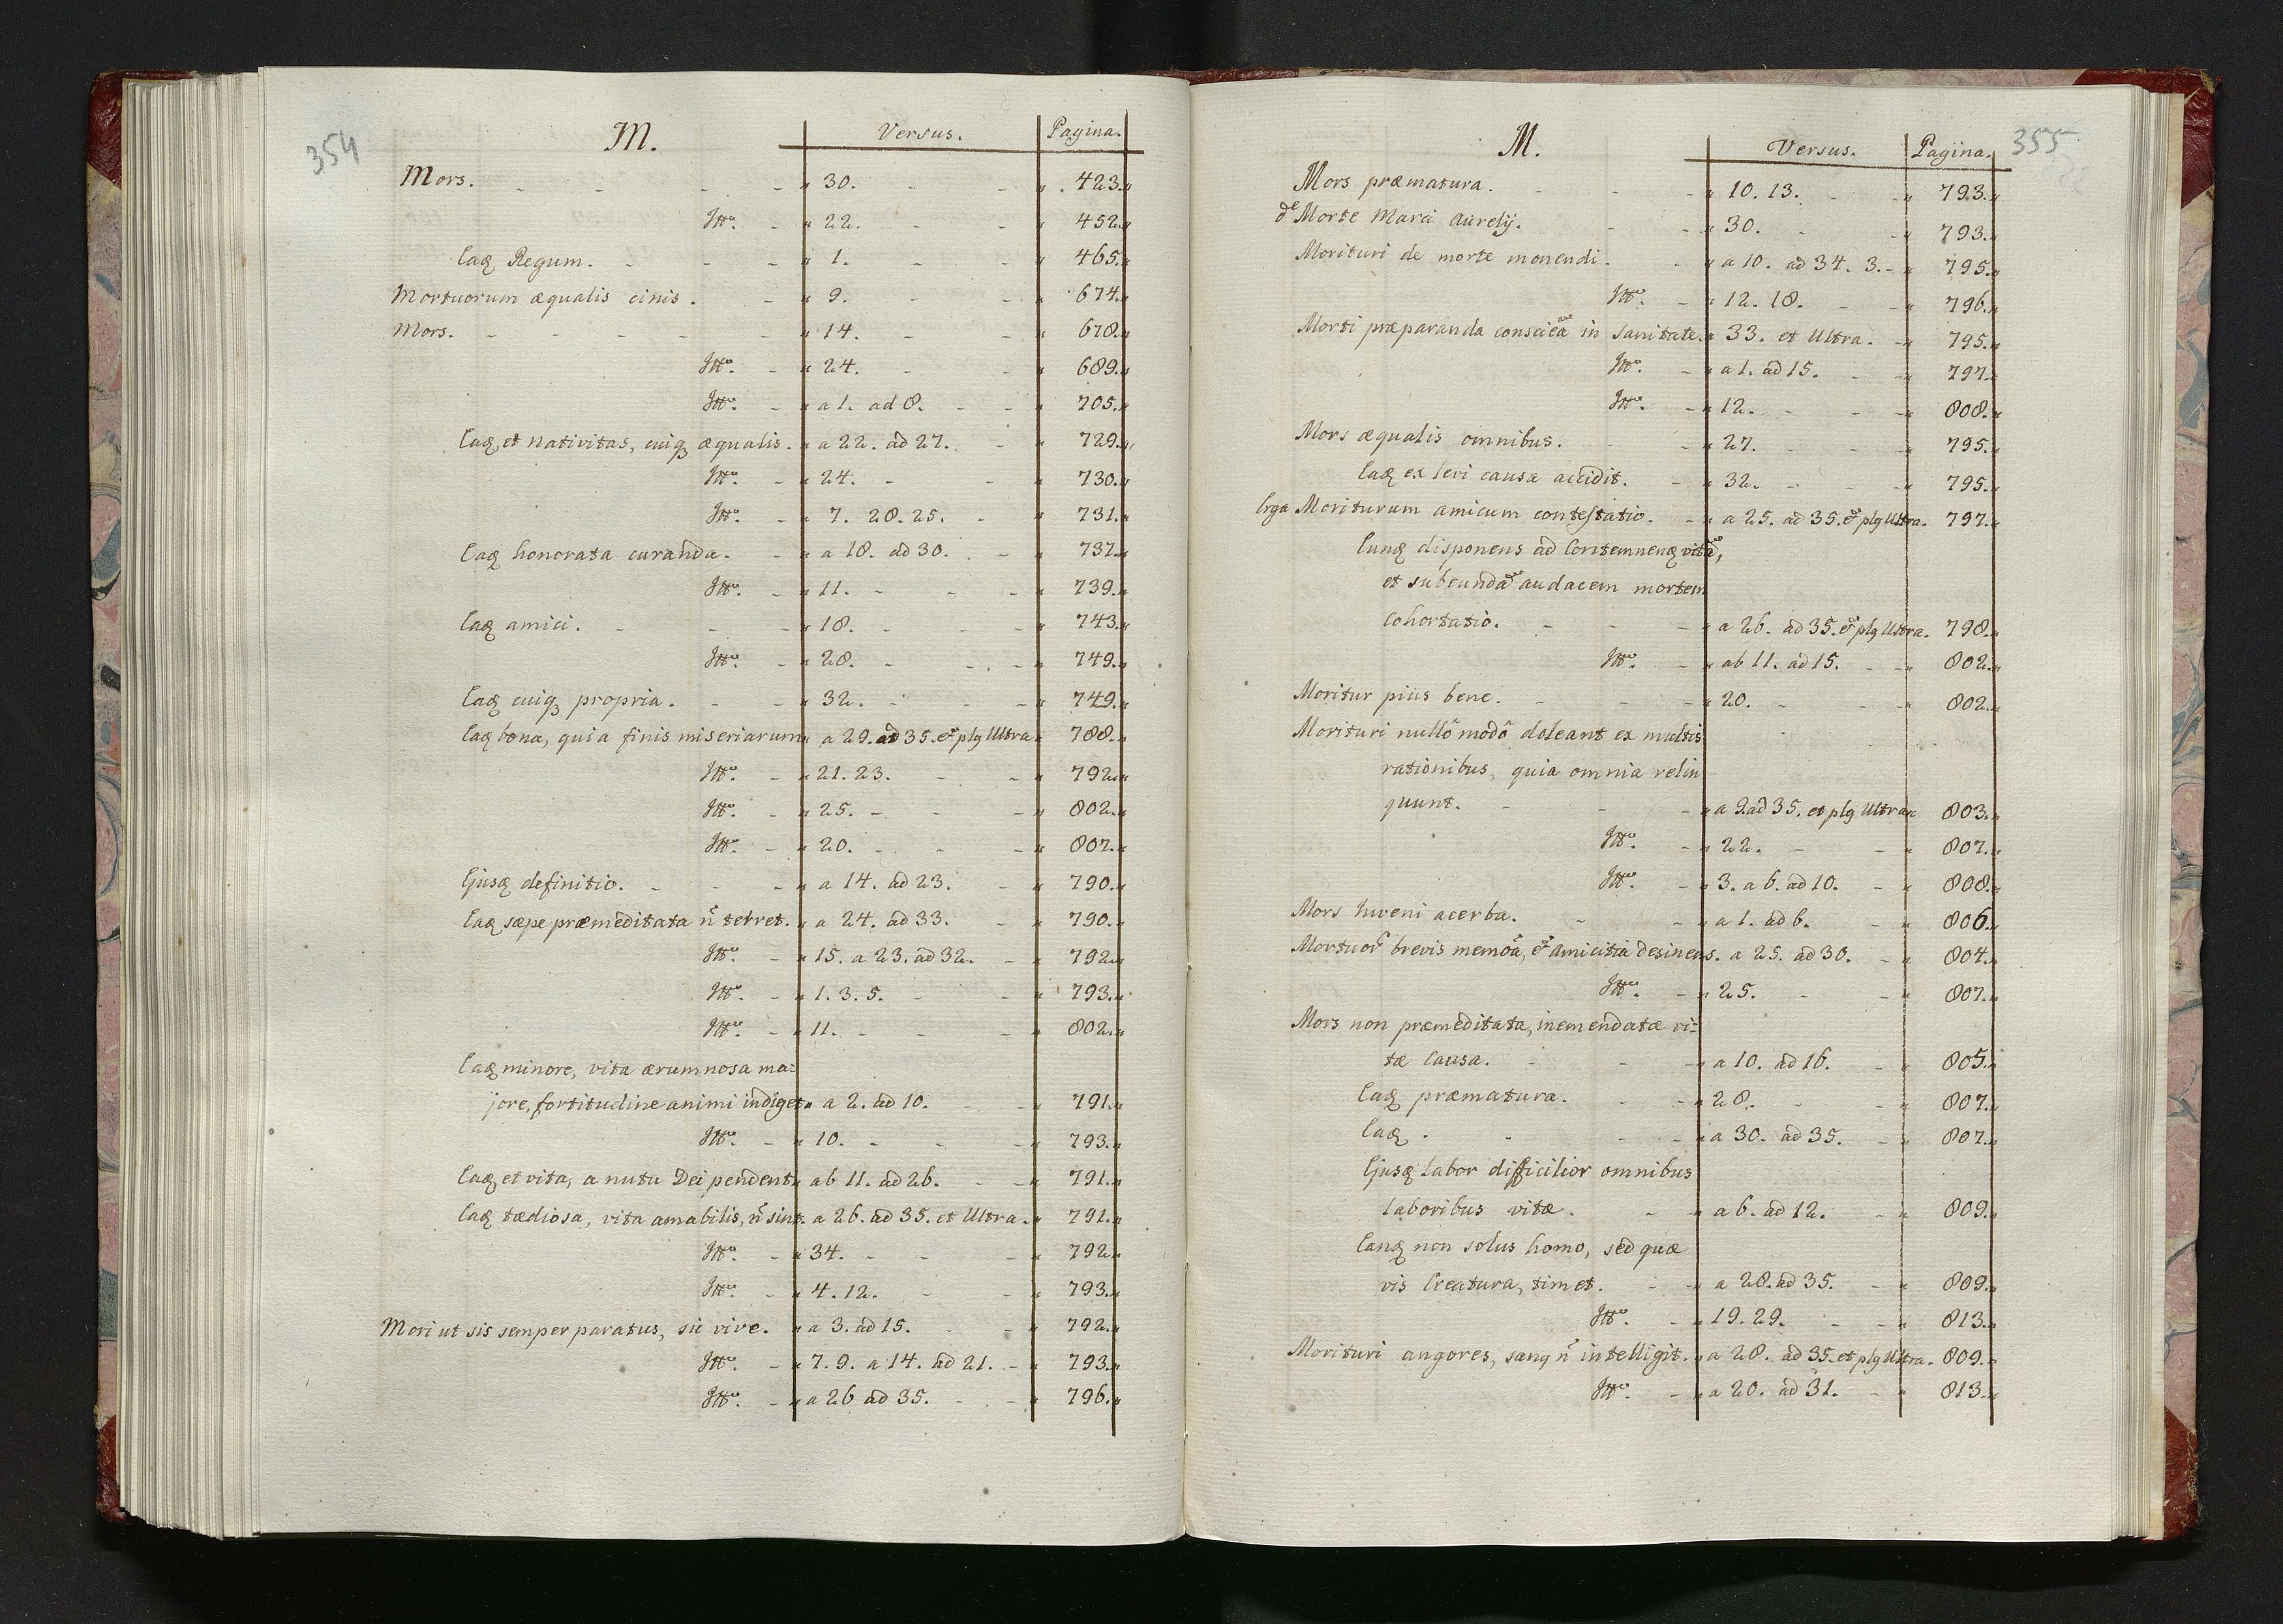 354
M. Versus. Pagina.
Mors. 30. 423.
Itto. 22. 452.
Eaq Regum. 1. 465.
Mortuorum æqualis cinis. 9. 674.
Mors. 14. 678.
Itto. 24. 689.
Itto. a 1. ad 8. 705.
Eaq, et nativitas, cuiq æqualis. a 22. ad 27. 729.
Itto. 24. 730.
Itto. 7. 28. 25. 731.
Eaq honorata curanda. a 18. ad 30. 737.
Itto. 11. 739.
Eaq amici. 18. 743.
Itto. 28. 749.
Eaq cuiq propria. 32. 749.
Eaq bona, quia finis miseriarum a 29. ad 35. et plq Ultra 788.
Itto. 21. 23. 792.
Itto. 25. 802.
Itto. 20. 807.
Ejusq definitio. a 14. ad 23. 790.
Eaq sæpe præmeditata ñ terret. a 24. ad 33. 790.
Itto. 15. a 23. ad 32. 792.
Itto. 1. 3. 5. 793.
Itto. 11. 802.
Eaq minore, vita ærumnosa ma-
jore, fortitudine animi indiget a 2. ad 10. 791.
Itto. 10. 793.
Eaq et vita, a nutu Dei pendent ab 11. ad 26. 791.
Eaq tædiosa, vita amabilis, ñ sint. a 26. ad 35. et Ultra. 791.
Itto. 34. 792.
Itto. 4. 12. 793.
Mori ut sis semper paratus, sic vive. a 3. ad 15. 792.
Itto. 7. 9. a 14. ad 21. 793.
Itto. a 26 ad 35. 796.
355
M. Versus. Pagina.
Mors præmatura. 10. 13. 793.
de Morte Marci Aurelij. 30. 793.
Morituri de morte monendi. a 10. ad 34. 3. 795.
Itto. 12. 18. 796.
Morti præparanda consciea in sanitate. 33. et Ultra. 795.
Itto. a 1. ad 15. 797.
Itto. 12. 808.
Mors æqualis omnibus. 27. 795.
Eaq ex levi causa accidit. 32. 795.
Erga Moriturum amicum contestatio. a 25. ad 35. et plq Ultra. 797.
Eunq disponens ad Contemnenq vitã,
et subeundã audacem mortem
Cohortatio. a 26. ad 35. et plq Ultra. 798.
Itto. ab 11. ad 15. 802.
Moritur pius bene. 20. 802.
Morituri nullõ modõ doleant ex multis
rationibus, quia omnia relin
quunt. a 9. ad 35. et plq Ultra 803.
Itto. 22. 807.
Itto. 3. a 6. ad 10. 808.
Mors Iuveni acerba. a 1. ad 6. 806.
Mortuor brevis memõa, et amicitia desinens. a 25. ad 30. 804.
Itto. 25. 807.
Mors non præmeditata, inemendatæ vi-
tæ Causa. a 10. ad 16. 805.
Eaq præmatura. 28. 807.
Eaq. a 30. ad 35. 807.
Ejusq labor difficilior omnibus
laboribus vitæ. a 6. ad 12. 809.
Eanq non solus homo, sed quæ
vis Creatura, timet. a 28. ad 35. 809.
Itto. 19. 29. 813.
Morituri angores, sanq ñ intelligit. a 28. ad 35. et plq Ultra. 809.
Itto. a 20. ad 31. 813.